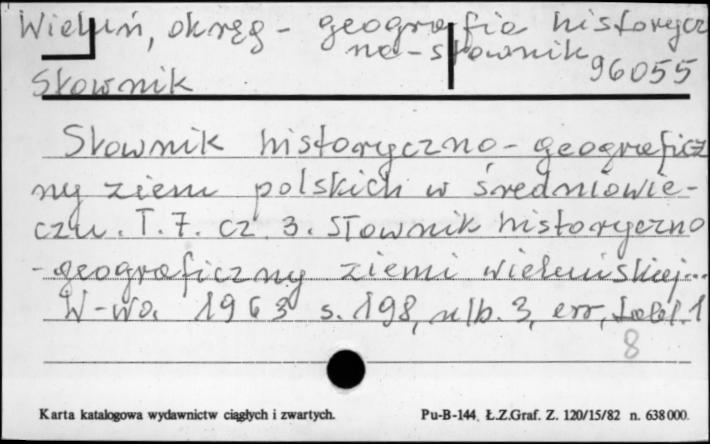 Wieluń, okręg - geografia historycz
na - słownik
96055
Słownik
Słownik historyczno-geograficz
ny ziem polskich w średniowie-
czu. T. 7. cz. 3. Słownik historyczno
-geograficzny ziemi wieluńskiej...
W-wa 1963 s. 198, nlb. 3, err, tabl. 1
8
Karta katalogowa wydawnictw ciągłych i zwartych.
Pu-B-144, Ł.Z.Graf. Z. 120/15/82 n. 638000.